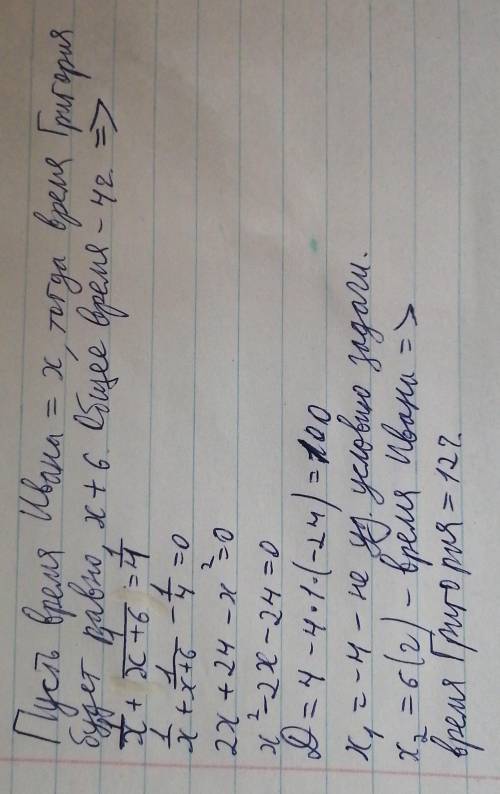 Пусть время Ивана = x, тогда время Григория
будет равно x+6. Общее время - 4ч. =>
1/x + 1/(x+6) = 1/4
1/x + 1/(x+6) - 1/4 = 0
2x+24-x²=0
x²-2x-24=0
D=4-4·1·(-24)=100
x₁=-4 - не уд. условию задачи.
x₂=6(ч) - время Ивана =>
время Григория = 12ч.